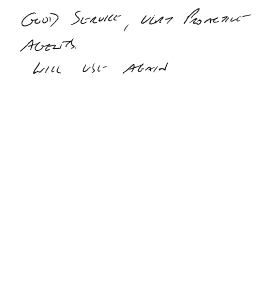 GOOD SERVICE, VERY PROACTIVE
AGENTS.
WILL USE AGAIN